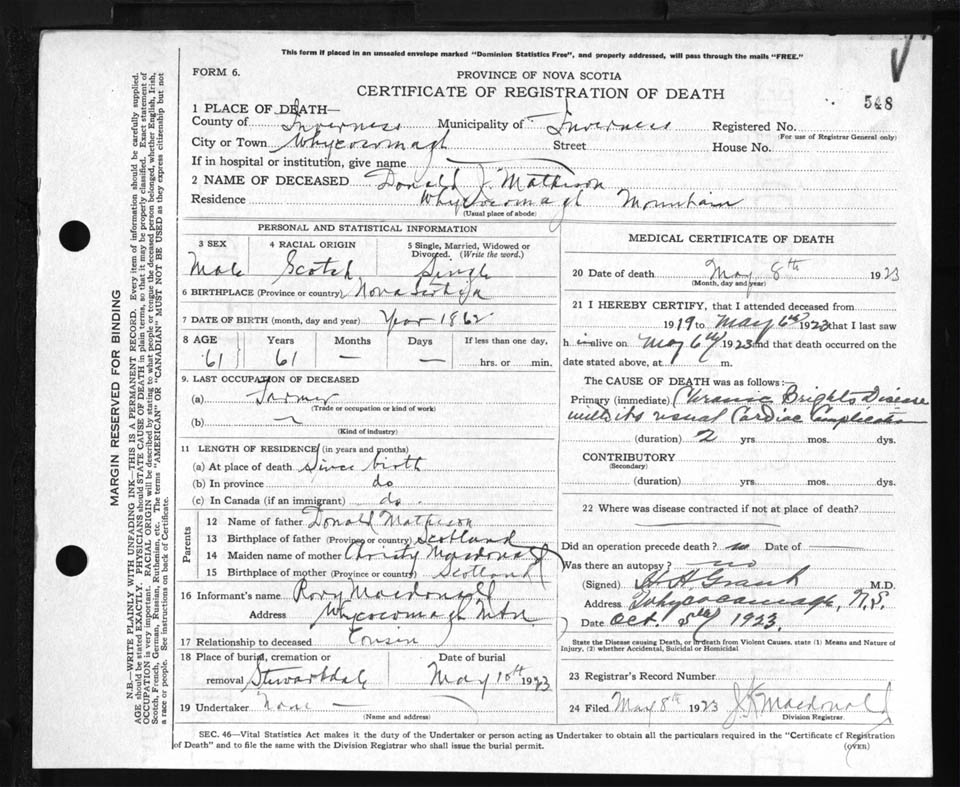 This form if placed in an unsealed envelope marked "Dominion Statistics Free", and properly addressed, will pass through the mails "FREE."
FORM 6.
PROVINCE OF NOVA SCOTIA
CERTIFICATE OF REGISTRATION OF DEATH
548
1 PLACE OF DEATH—
County of Inverness Municipality of Inverness Registered No.
(For use of Registrar General only)
City or Town Whycocomagh Street House No.
If in hospital or institution, give name
2 NAME OF DECEASED Donald J. Matheson
Residence Whycocomagh Mountain
(Usual place of abode)
PERSONAL AND STATISTICAL INFORMATION
3 SEX 4 RACIAL ORIGIN 5 Single, Married, Widowed or Divorced. (Write the word.)
Male Scotch Single
6 BIRTHPLACE (Province or country) Nova Scotia
7 DATE OF BIRTH (month, day and year) Year 1862
8 AGE Years Months Days If less than one day,
61 61 — — hrs. or min.
9. LAST OCCUPATION OF DECEASED
(a) Farmer
(Trade or occupation or kind of work)
(b)
(Kind of industry)
11 LENGTH OF RESIDENCE (in years and months)
(a) At place of death Since birth
(b) In province do
(c) In Canada (if an immigrant) do.
Parents
12 Name of father Donald Matheson
13 Birthplace of father (Province or country) Scotland
14 Maiden name of mother Christy Macdonald
15 Birthplace of mother (Province or country) Scotland
16 Informant's name Rory Macdonald
Address Whycocomagh Mtn
17 Relationship to deceased Cousin
18 Place of burial, cremation or Date of burial
removal Stewartdale May 10th 1923
19 Undertaker None —
(Name and address)
MEDICAL CERTIFICATE OF DEATH
20 Date of death May 8th 1923
(Month, day and year)
21 I HEREBY CERTIFY, that I attended deceased from
1919 to May 6th 1923 that I last saw
h im alive on May 6th 1923 and that death occurred on the
date stated above, at m.
The CAUSE OF DEATH was as follows:
Primary (immediate) Chronic Brights Disease
with its usual Cardiac Complication
(duration) 2 yrs. mos. dys.
CONTRIBUTORY
(Secondary)
(duration) yrs. mos. dys.
22 Where was disease contracted if not at place of death?
Did an operation precede death? no Date of
Was there an autopsy? no
(Signed) A Grant M.D.
Address Whycocomagh, N.S.
Date Oct. 1923.
State the Disease causing Death, or in death from Violent Causes, state (1) Means and Nature of
Injury, (2) whether Accidental, Suicidal or Homicidal
23 Registrar's Record Number
24 Filed May 8th 1923 J K Macdonald
Division Registrar.
SEC. 46—Vital Statistics Act makes it the duty of the Undertaker or person acting as Undertaker to obtain all the particulars required in the "Certificate of Registration
of Death" and to file the same with the Division Registrar who shall issue the burial permit.
(OVER)
MARGIN RESERVED FOR BINDING
N.B.—WRITE PLAINLY WITH UNFADING INK—THIS IS A PERMANENT RECORD. Every item of information should be carefully supplied.
AGE should be stated EXACTLY. PHYSICIANS should STATE CAUSE OF DEATH in plain terms, so that it may be properly classified. Exact statement of
OCCUPATION is very important. RACIAL ORIGIN will be described by stating to what people or tongue the deceased person belonged, whether English, Irish,
Scotch, French, German, Russian, Ruthenian, etc. The terms "AMERICAN" OR "CANADIAN" MUST NOT BE USED as they express citizenship but not
a race or people. See instructions on back of Certificate.